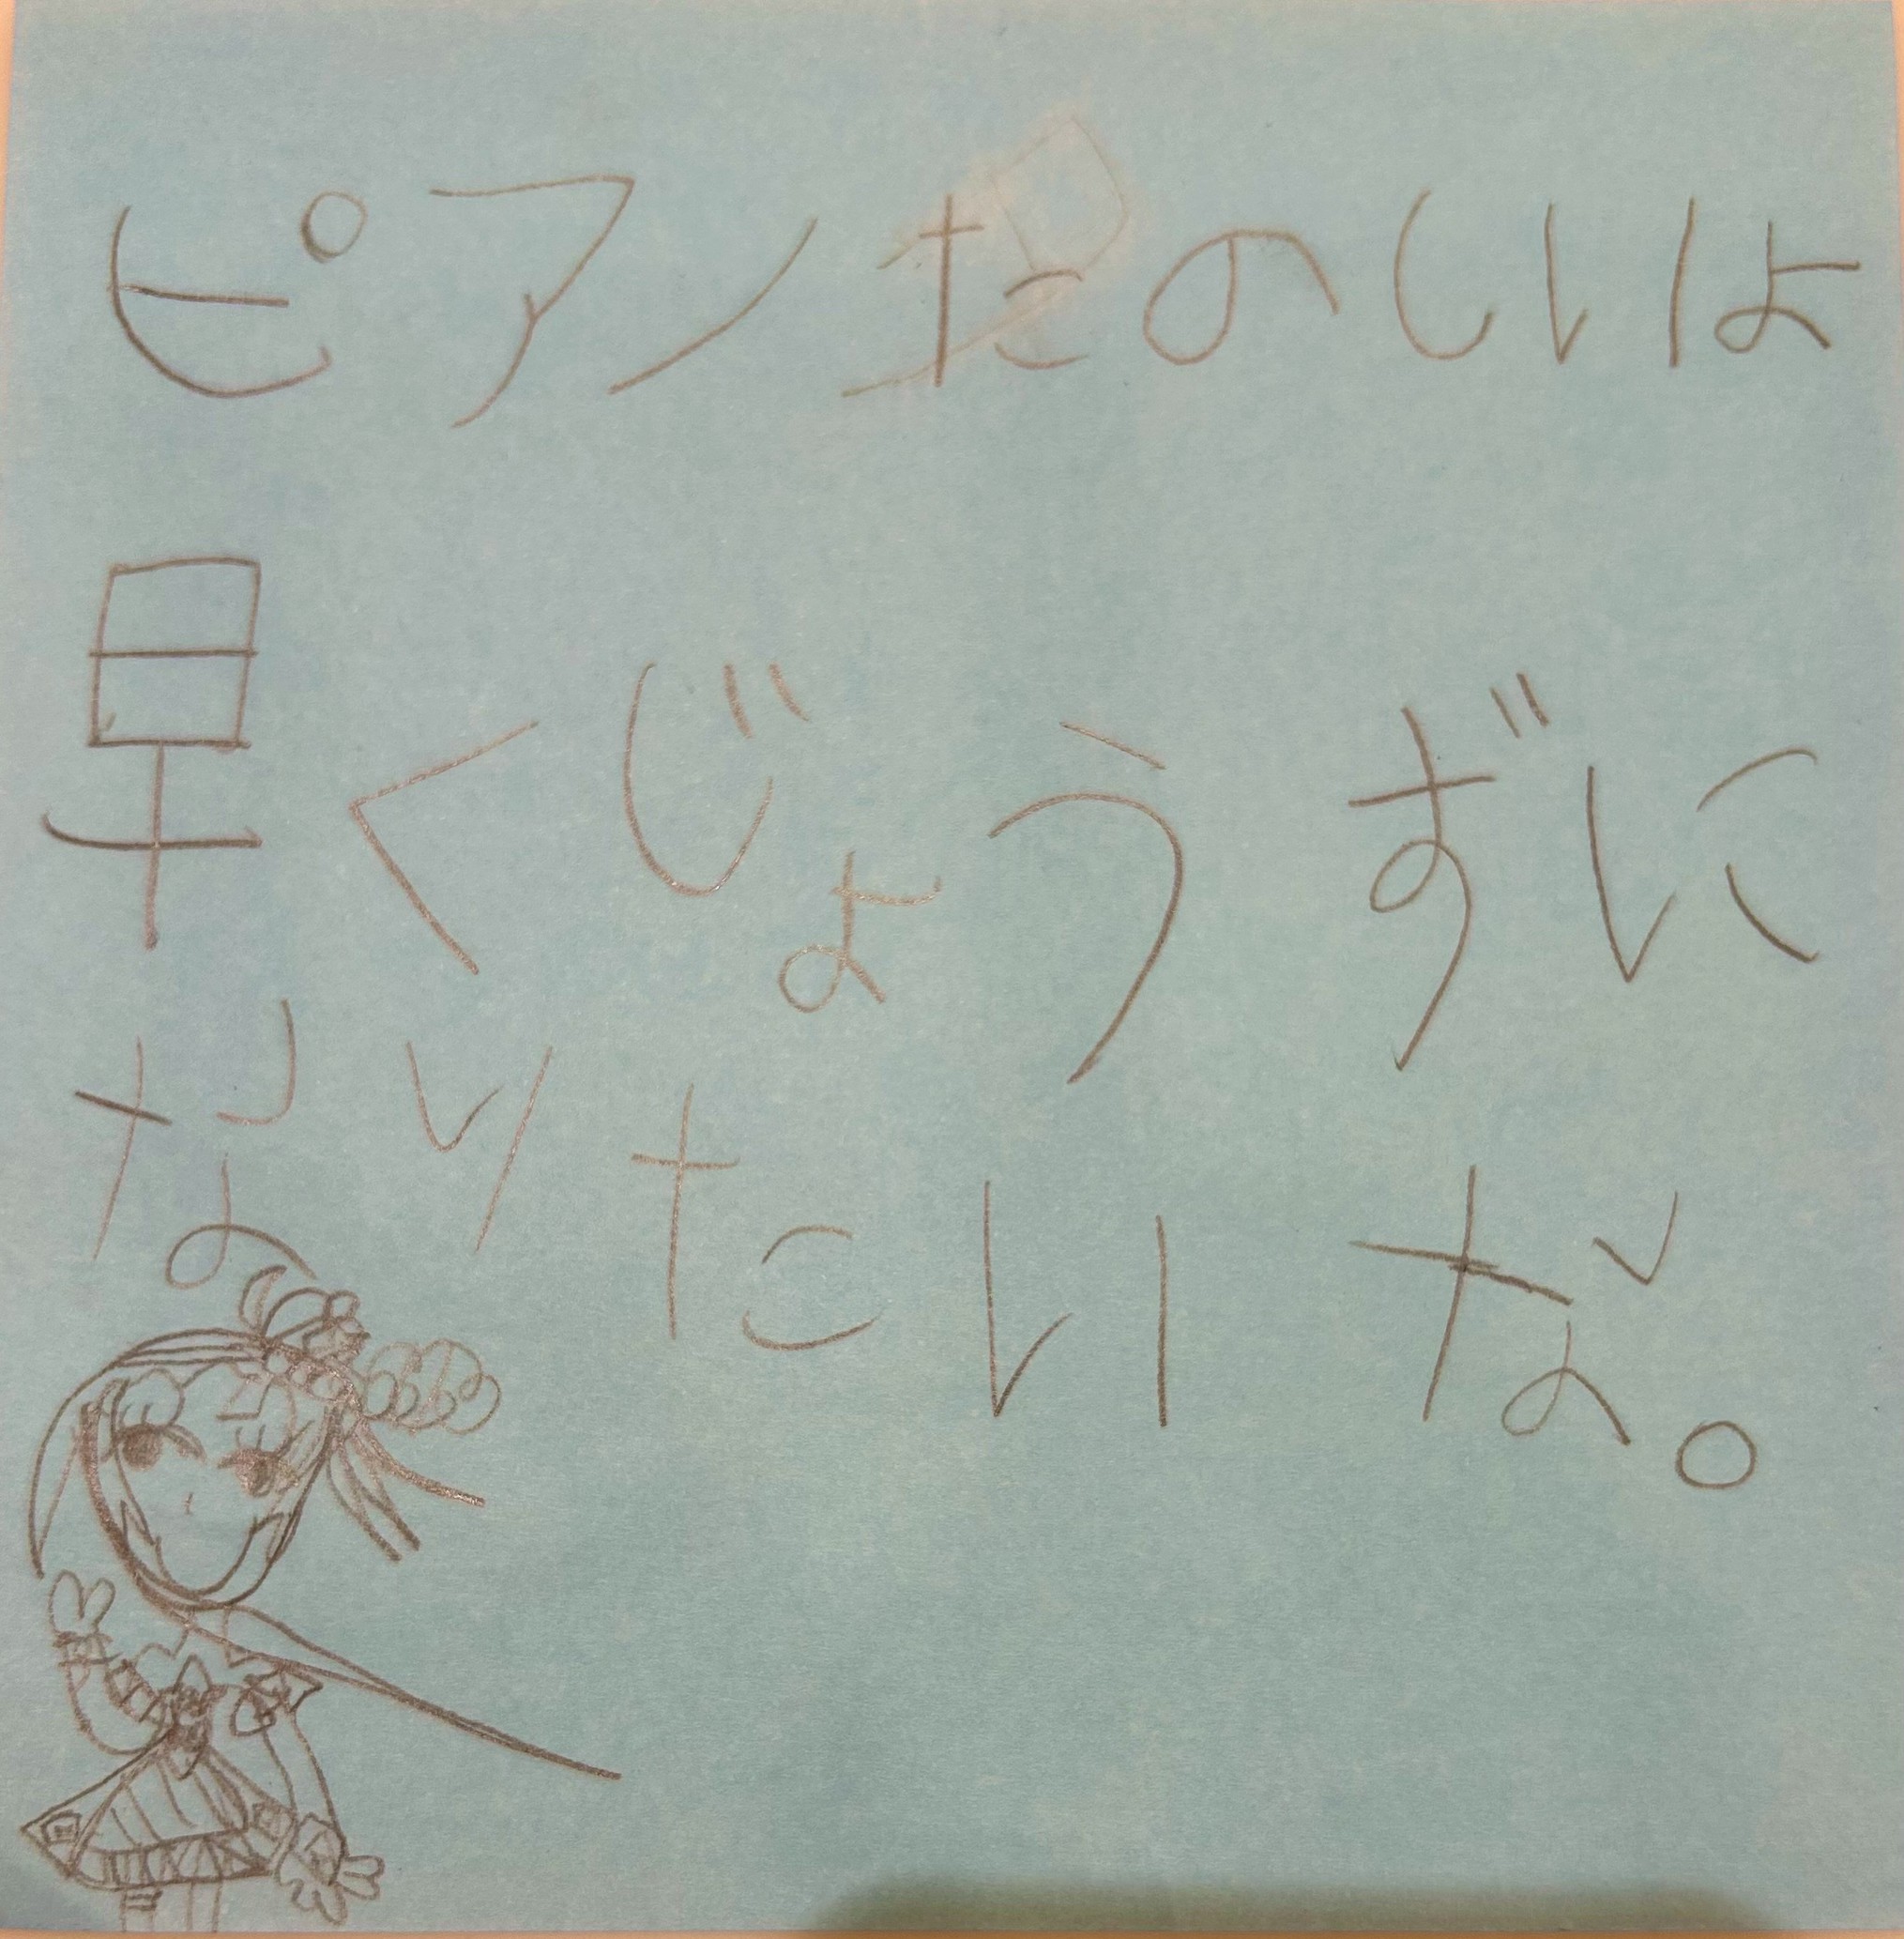 ピアノたのしいよ
早くじょうずに
なりたいな。